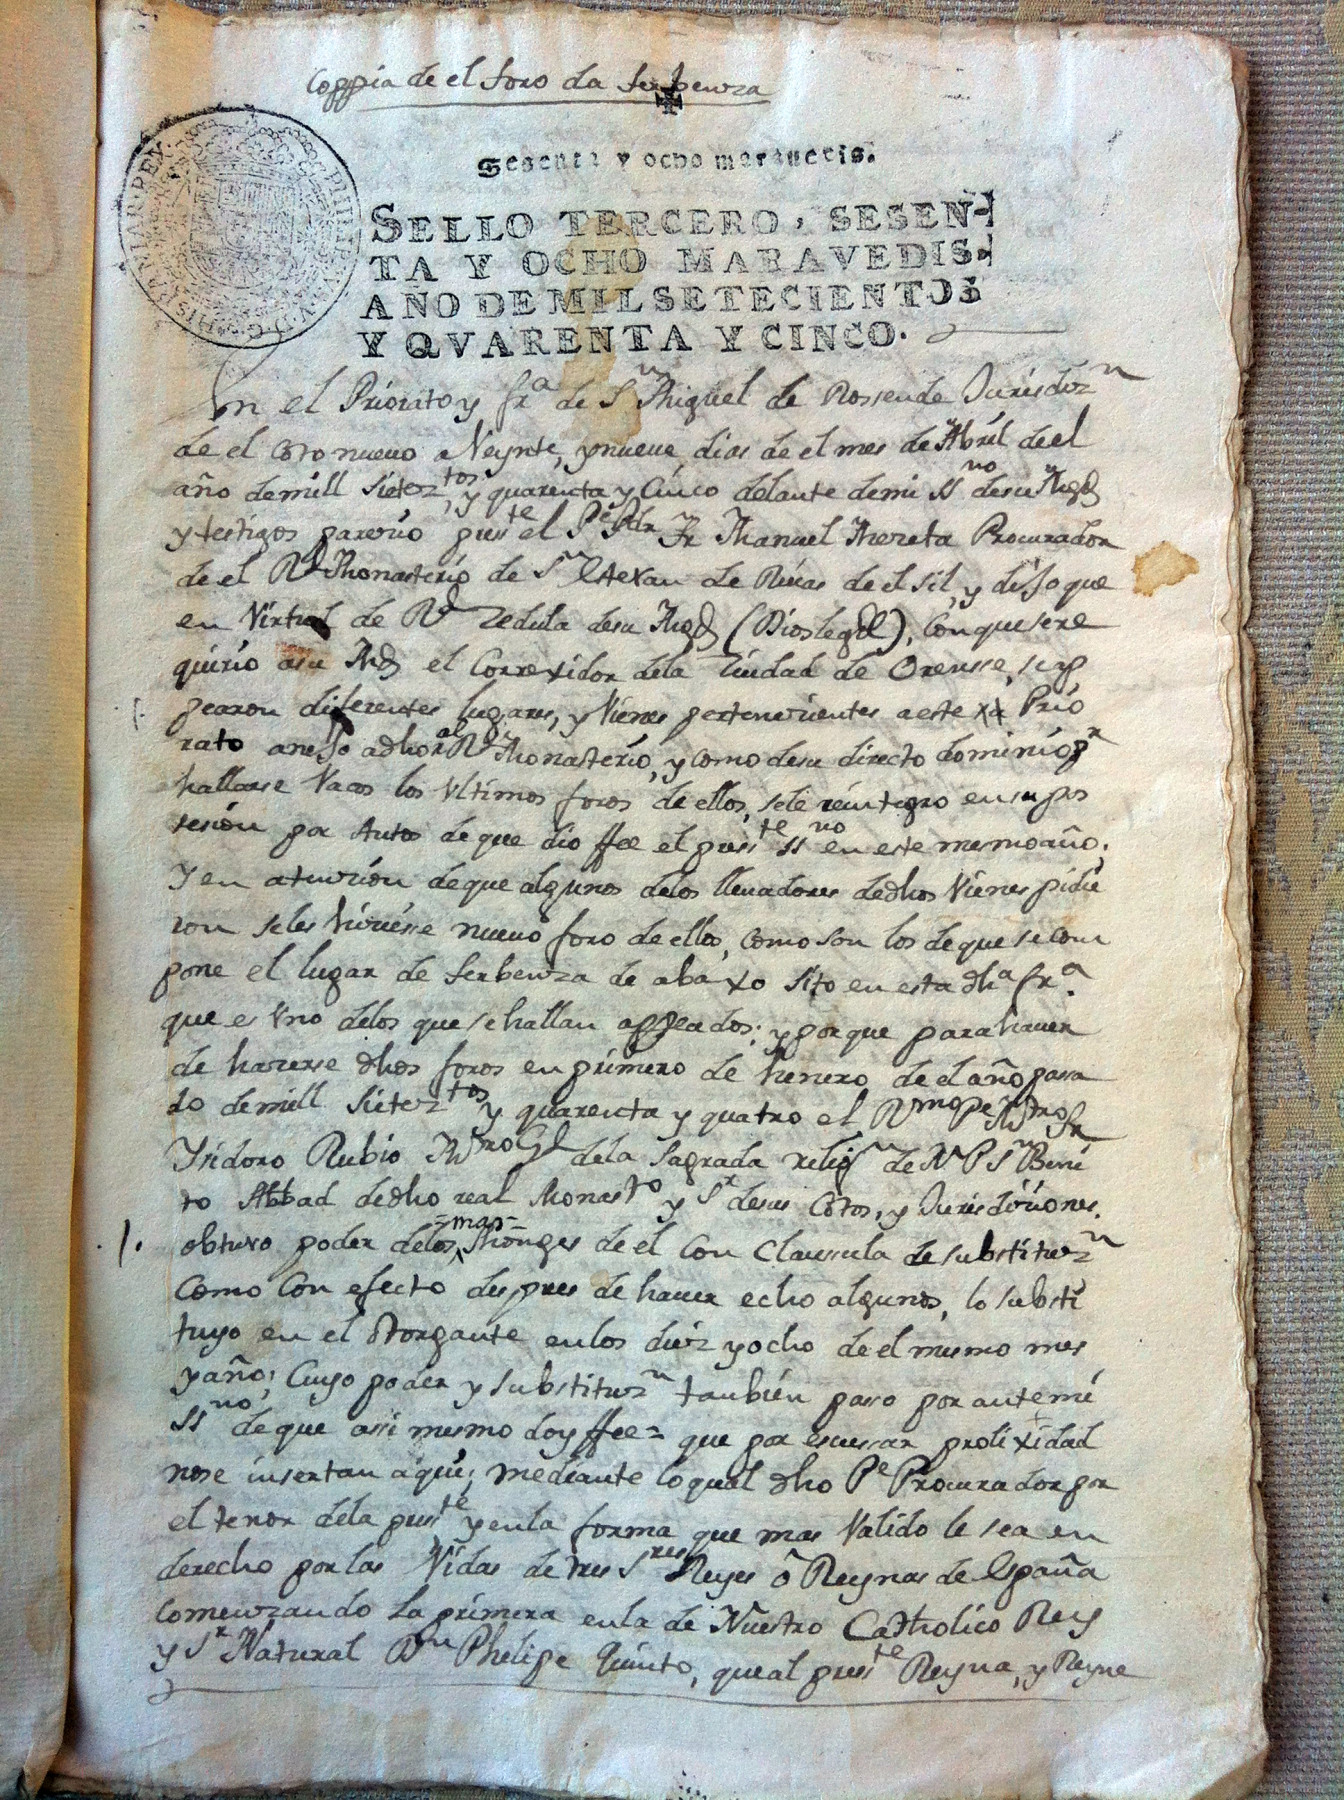 Coppia de el foro da Serbenza
Sesenta y ocho maravedis.
PHILIPPVS V D G HISPANIAR REX
SELLO TERCERO, SESEN-
TA Y OCHO MARAVEDIS.
AÑO DE MIL SETECIENTOS
Y QVARENTA Y CINCO.
En el Priorato y frª de Sn Miguel de Rossende Jurisdizn
de el Coto nuevo a Veynte, y nueve dias de el mes de Abril de el
año de mill sieteztos, y quarenta y Cinco delante de mi ssno de su Magd
y testigos parecio preste el Pe Pdr Fr Manuel Mereta Procurador
de el Rl Monasterio de Sn Estevan de Rivas de el Sil, y dijo que
en Virtud de Rl Zedula de su Magd (Dios le gde), Con que se re
quirio a su Md el Correxidor de la Ciudad de Orense, se ap
pearon diferentes lugares, y Vienes pertenecientes a este Prio
rato anejo a dho Rl Monasterio, y como de su directo dominio pr
hallarse Vacos los Vltimos foros de ellos, se le reintegro en su pos
sesion por Autos de que dio ffee el preste ssno en este mesmo año;
Y en atencion de que algunos de los llevadores de dhos Vienes pidie
ron se les hiciesse nuevo foro de ellos, como son los de que se com
pone el lugar de Serbenza de abaxo sito en esta dhª frª.
que es Vno de los que se hallan appeados; y porque para haver
de hacerse dhos foros en primero de henero de el año passa
do de mill sieteztos y quarenta y quatro el Rmo Pe Mro fr
Ysidoro Rubio Mro Gl de la Sagrada relign de N P Sn Beni
to Abbad de dho real Monasto y Sr de sus Cotos, y Jurisdiciones.
obtuvo poder de los =mas= Monges de el Con Clausula de substituzn
Como Con efecto despues de haver echo algunos, lo substi
tuyo en el Otorgante en los diez y ocho de el mesmo mes
y año; Cuyo poder y substituzn tambien passo por ante mi
ssno de que assi mesmo doy ffee = que por escussar prolixidad
no se insertan aqui; mediante lo qual dho Pe Procurador por
el tenor de la preste y en la forma que mas Valido le sea en
derecho por las Vidas de tres Sres Reyes ô Reynas de España
Comenzando la primera en la de Nuestro Catholico Rey
y Sr Natural Dn Phelipe Quinto, que al preste Reyna, y Reyne